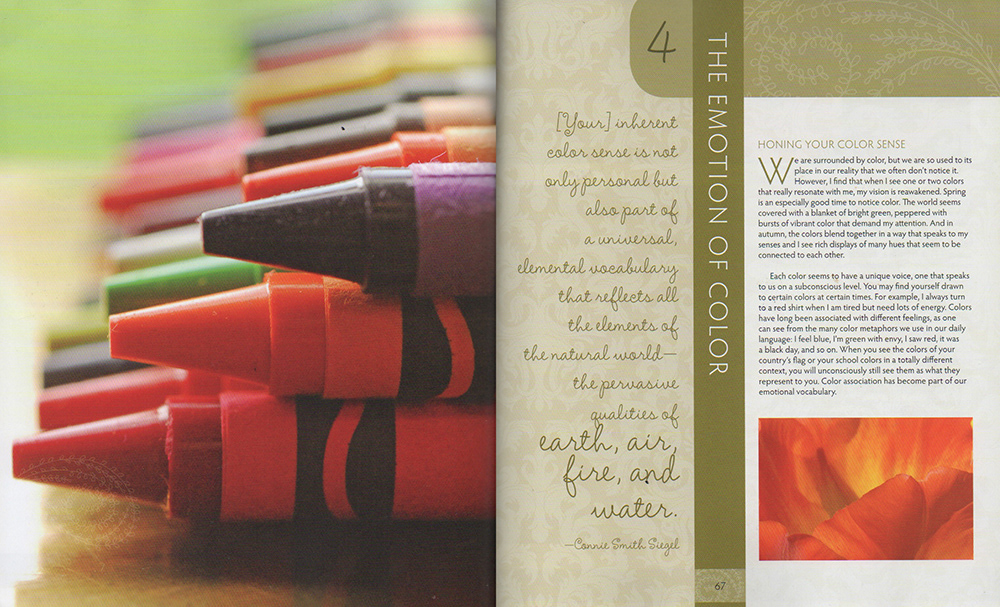 4
THE EMOTION OF COLOR
[Your] inherent
color sense is not
only personal but
also part of
a universal,
elemental vocabulary
that reflects all
the elements of
the natural world—
the pervasive
qualities of
earth, air,
fire, and
water.
—Connie Smith Siegel
67
HONING YOUR COLOR SENSE
We are surrounded by color, but we are so used to its
place in our reality that we often don't notice it.
However, I find that when I see one or two colors
that really resonate with me, my vision is reawakened. Spring
is an especially good time to notice color. The world seems
covered with a blanket of bright green, peppered with
bursts of vibrant color that demand my attention. And in
autumn, the colors blend together in a way that speaks to my
senses and I see rich displays of many hues that seem to be
connected to each other.
Each color seems to have a unique voice, one that speaks
to us on a subconscious level. You may find yourself drawn
to certain colors at certain times. For example, I always turn
to a red shirt when I am tired but need lots of energy. Colors
have long been associated with different feelings, as one
can see from the many color metaphors we use in our daily
language: I feel blue, I'm green with envy, I saw red, it was
a black day, and so on. When you see the colors of your
country's flag or your school colors in a totally different
context, you will unconsciously still see them as what they
represent to you. Color association has become part of our
emotional vocabulary.